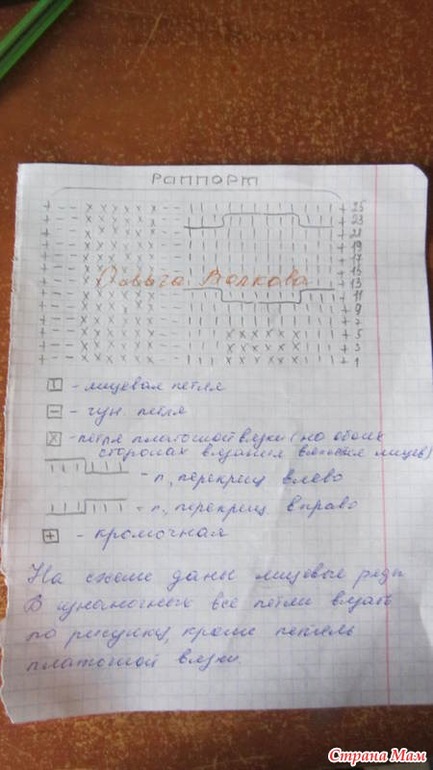 Раппорт
25
23
21
19
17
15
13
11
9
7
5
3
1
Ольга Волкова
- лицевая петля
- изн петля
- петля платочной вязки (на обоих
сторонах вязания вяжется лицев)
- п, перекрещ влево
- п, перекрещ вправо
- кромочная
На схеме даны лицевые ряды
В изнаночных все петли вязать
по рисунку, кроме петель
платочной вязки
Страна Мам